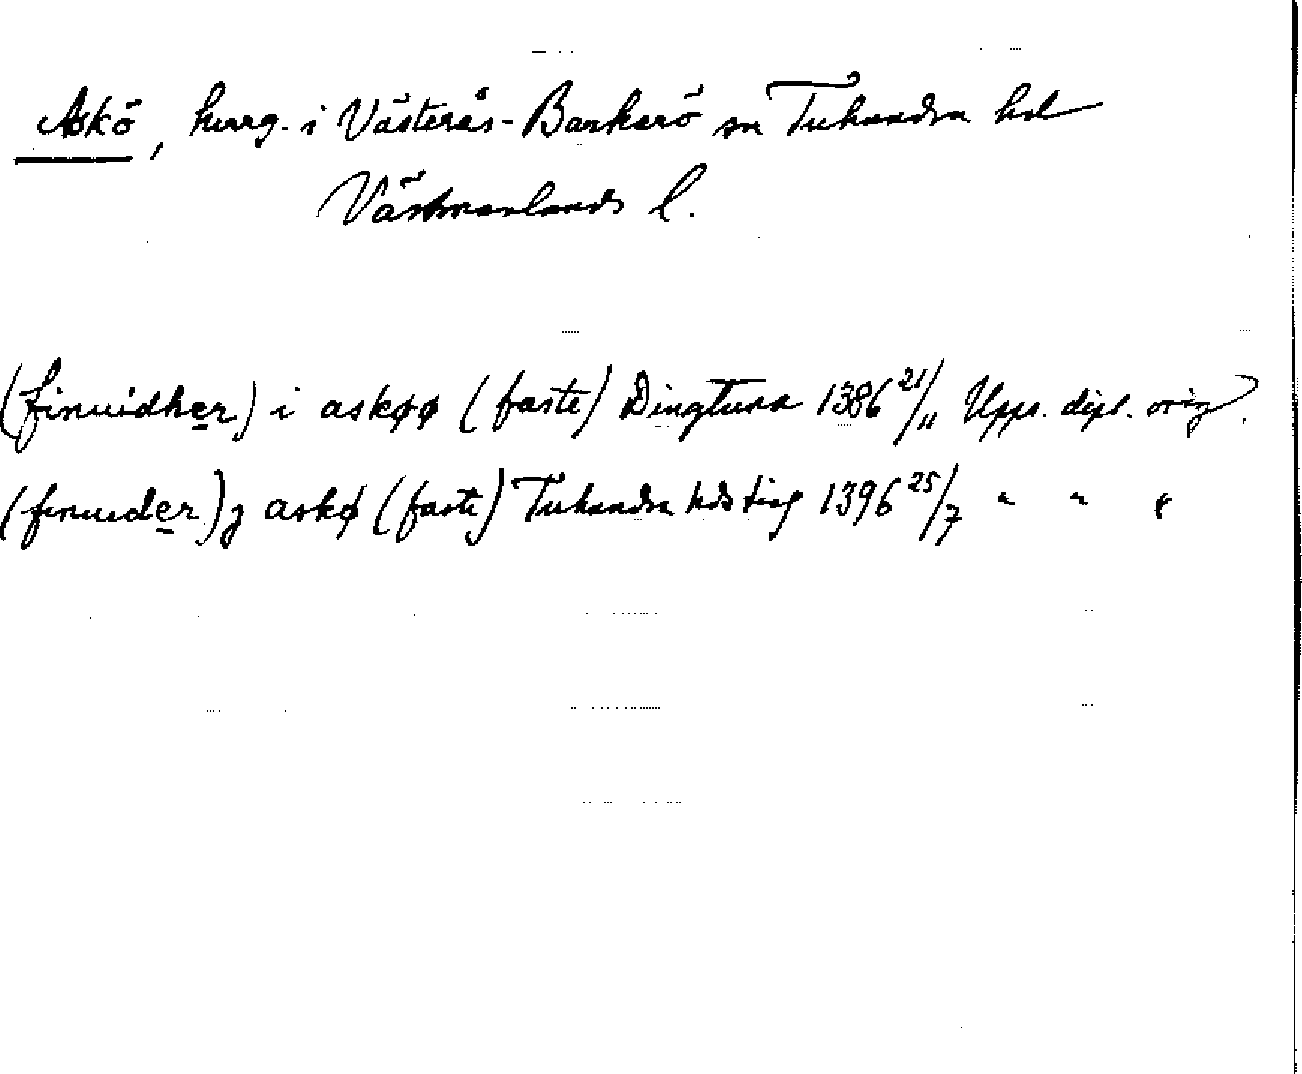 Askö, herrg. i Västerås-Barkarö sn Tuhundra hd
Västmanlands l.
(finuidher) i askøø (faste) Dingtuna 1386 21/11 Upps. dipl. orig.
(finueder) j askø (faste) Tuhundra hds ting 1396 25/7 " " "